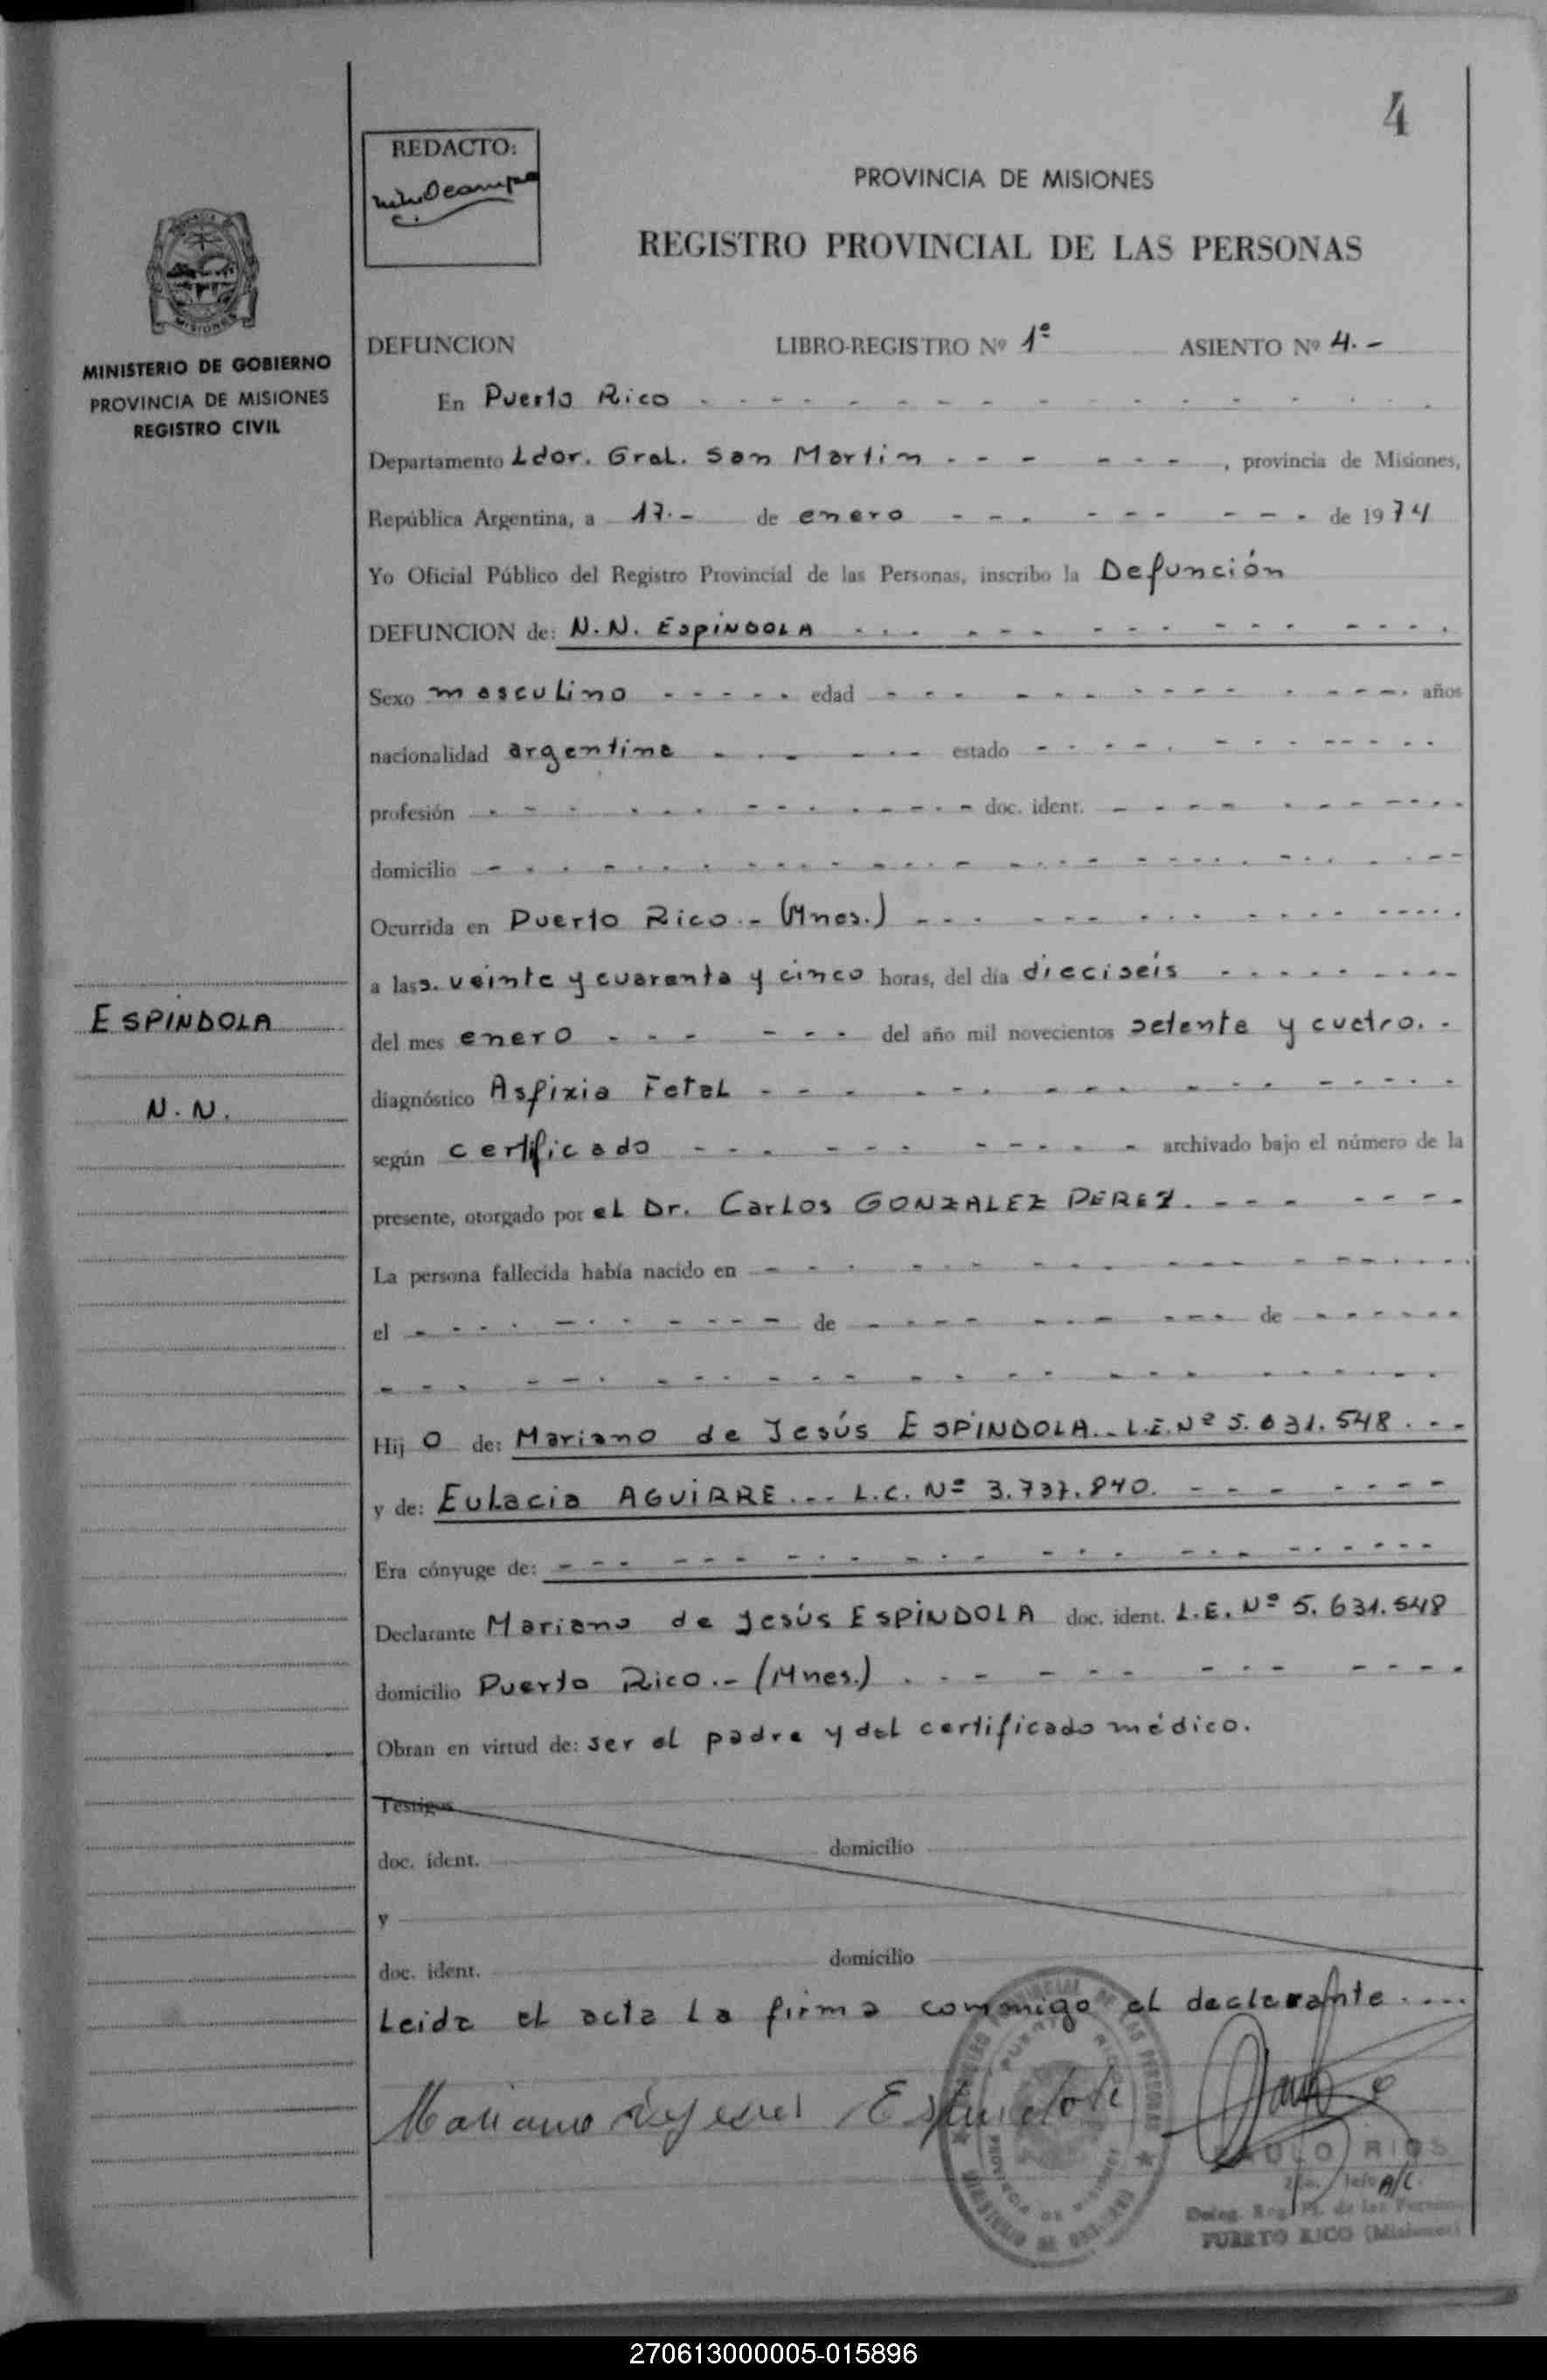 4
REDACTO:
PROVINCIA DE MISIONES
REGISTRO PROVINCIAL DE LAS PERSONAS
MISIONES
MINISTERIO DE GOBIERNO
PROVINCIA DE MISIONES
REGISTRO CIVIL
ESPINDOLA
N.N.
DEFUNCION LIBRO-REGISTRO Nº 1º ASIENTO Nº 4.-
En Puerto Rico
Departamento Ldor. Gral. San Martin - - - - - - , provincia de Misiones,
República Argentina, a 17.- de enero - - - - - - - - - - de 1974
Yo Oficial Público del Registro Provincial de las Personas, inscribo la Defunción
DEFUNCION de: N.N. ESPINDOLA
Sexo masculino - - - - - edad - - - años
nacionalidad argentina - - - estado - - -
profesión - - - doc. ident. - - -
domicilio - - -
Ocurrida en Puerto Rico.- (Mnes.) - - -
a las veinte y cuarenta y cinco horas, del día dieciseis - - -
del mes enero - - - - - - del año mil novecientos setenta y cuatro.-
diagnóstico Asfixia Fetal - - -
según certificado - - - archivado bajo el número de la
presente, otorgado por el Dr. Carlos GONZALEZ PEREZ. - - -
La persona fallecida había nacido en - - -
el - - - de - - - de - - -
Hijo de: Mariano de Jesús ESPINDOLA.. L.E. Nº 5.631.548. - -
y de: Eulacia AGUIRRE... L.C. Nº 3.737.840. - - -
Era cónyuge de: - - -
Declarante Mariano de Jesús ESPINDOLA doc. ident. L.E. Nº 5.631.548
domicilio Puerto Rico.- (Mnes.) - - -
Obran en virtud de: ser el padre y del certificado médico.
Testigos
doc. ident. domicilio
y
doc. ident. domicilio
Leida el acta la firma conmigo el declarante....
Mariano Espindola
RIOS
A/C.
PUERTO RICO (Misiones)
270613000005-015896